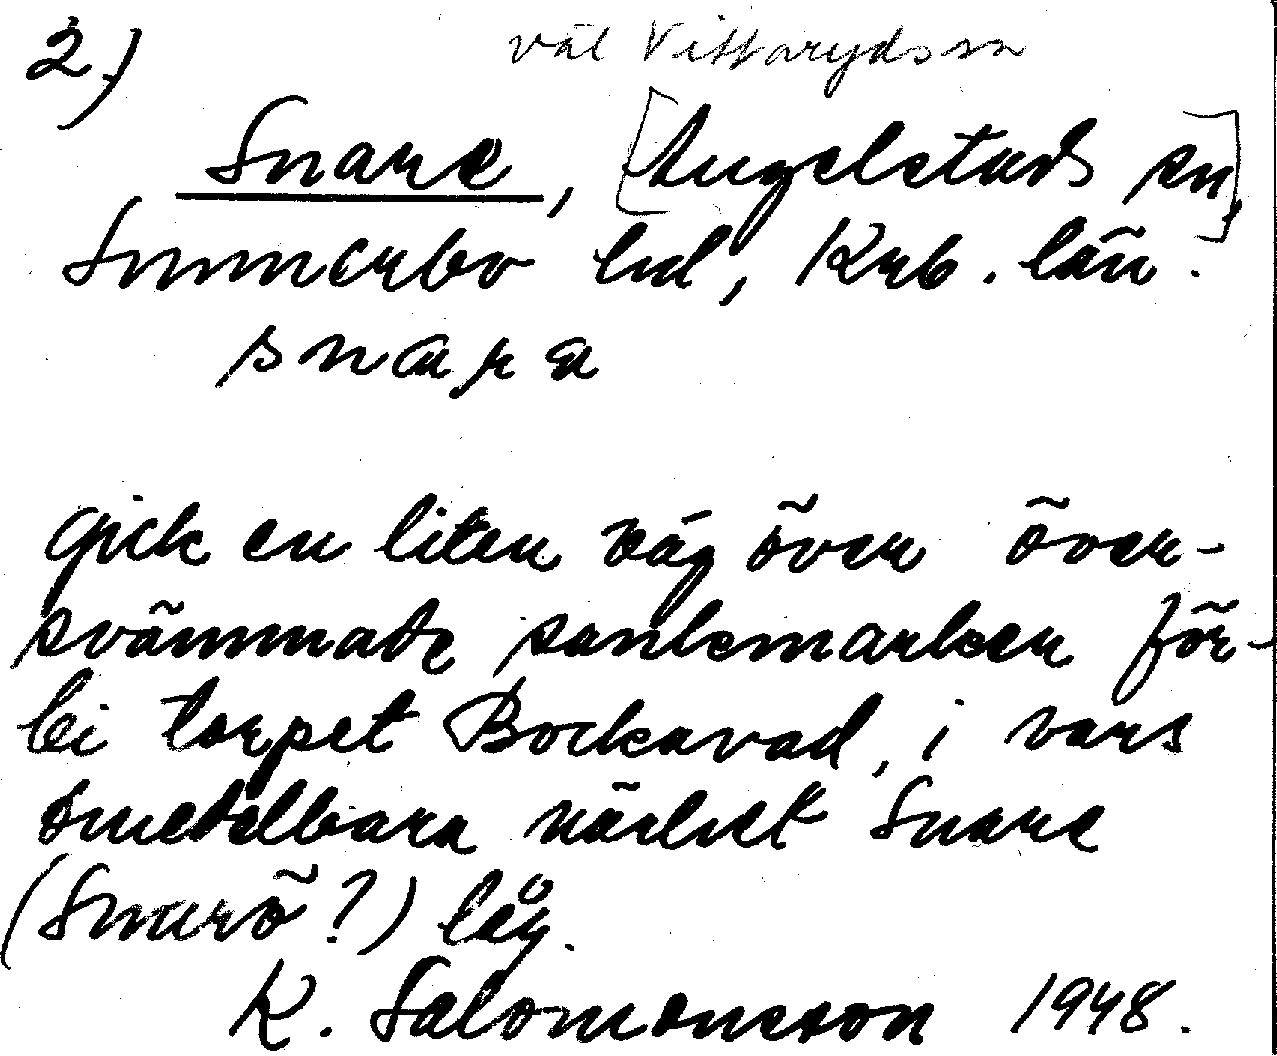 2.)
väl Vittaryds sn
Snare, [Angelstads sn,]
Sunnerbo hd, Krb. län.
snara
gick en liten väg över över-
svämmade sankmarker för-
bi torpet Bockavad, i vars
omedelbara närhet Snare
(Snarö?) låg.
K. Salomonsson 1948.